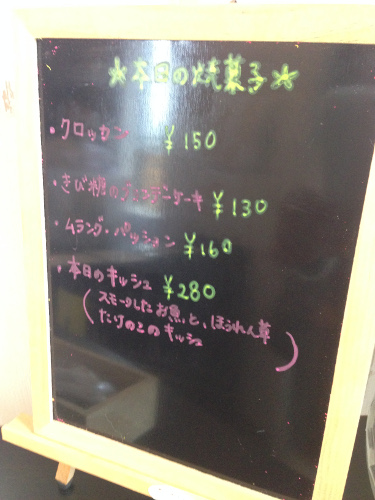 ☆本日の焼菓子☆
・クロッカン ¥150
・きび糖のダコワーズケーキ ¥130
・ムラング・パッション ¥160
・本日のキッシュ ¥280
(スモークしたお魚と、ほうれん草
たけのこのキッシュ)